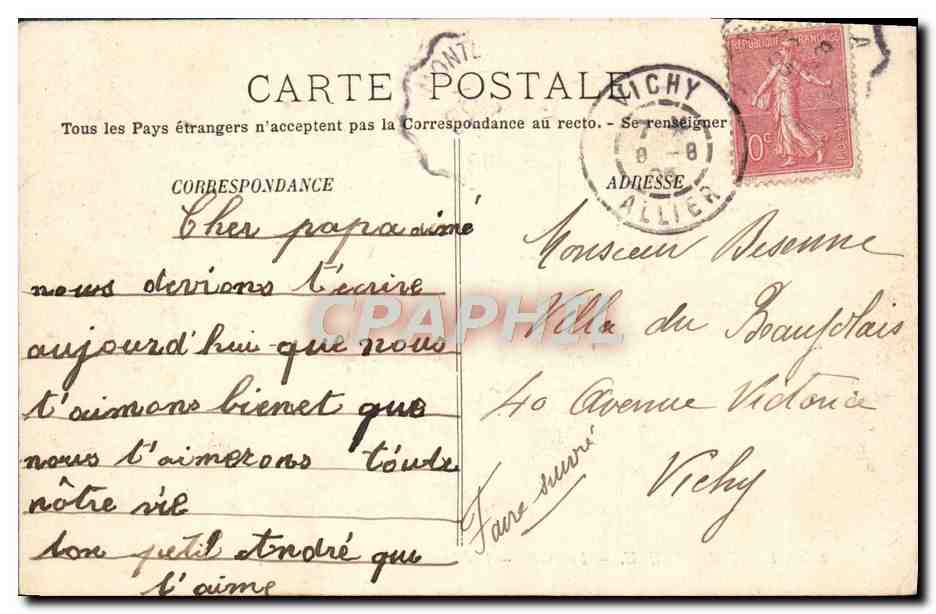 CARTE POSTALE
Tous les Pays étrangers n'acceptent pas la Correspondance au recto. - Se renseigner
CORRESPONDANCE
Cher papa aimé
nous devions t'écrire
aujourd'hui que nous
t'aimons bienet que
nous t'aimerons toute
nôtre vie
ton petit André qui
t'aime
ADRESSE
Monsieur Besenne
Villa du Beaujolais
40 Avenue Victoria
Vichy
Faire suivre
VICHY
8 -8
ALLIER
REPUBLIQUE FRANÇAISE
0c
MONTL
CPAPHIL